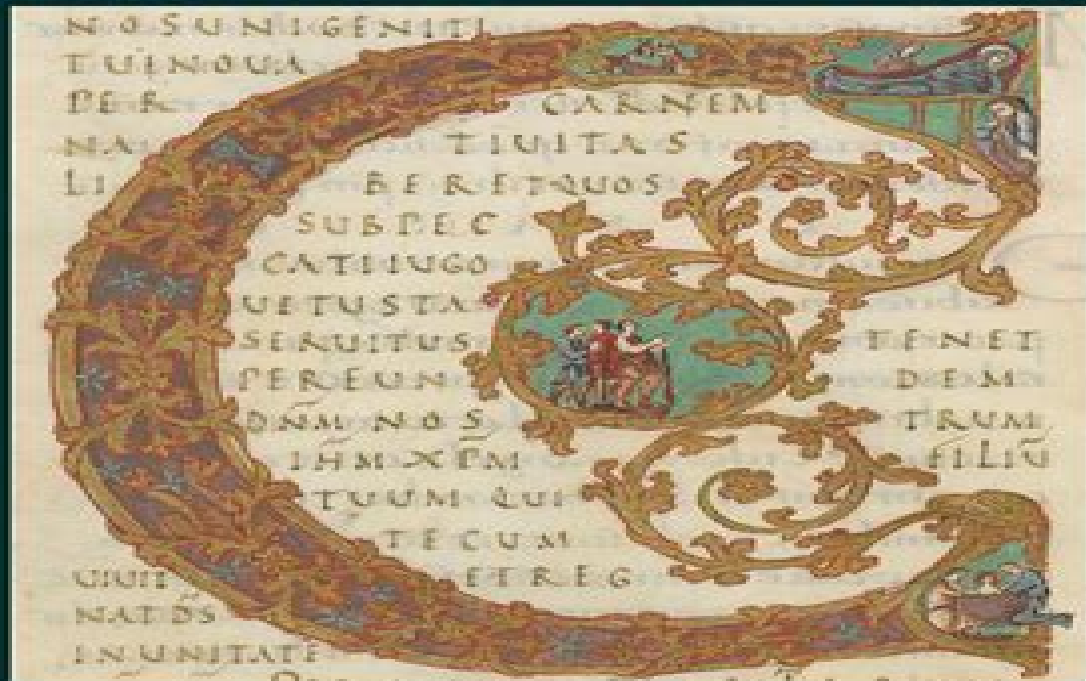 NOSUNIGENITI
TUINOUA
PER CARNEM
NA TIUITAS
LI BERETQUOS
SUBPEC
CATIIUGO
UETUSTA
SERUITUS TENET
PEREUN DEM
DÑM NOS TRUM
IHM XPM FILIŪ
TUUM QUI
TECUM
UIUIT ET REG
NAT DS
IN UNITATE